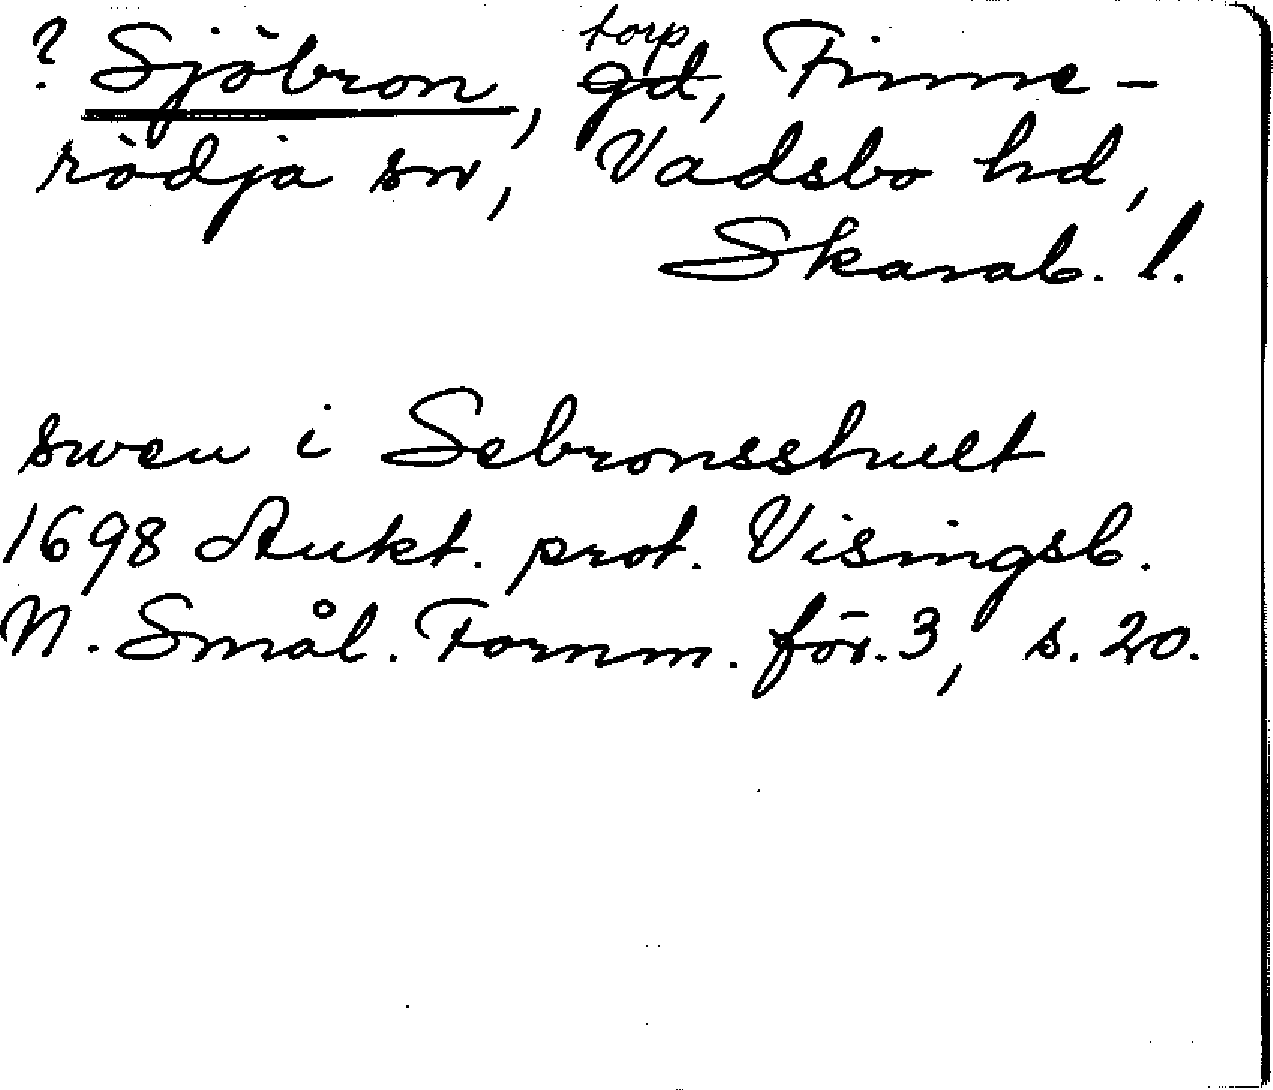 torp
? Sjöbron, gd, Finne-
rödja sn, Vadsbo hd,
Skarab. l.
swen i Sebronsshult
1698 Aukt. prot. Visingsb.
N. Smål. Fornm. för. 3, s. 20.